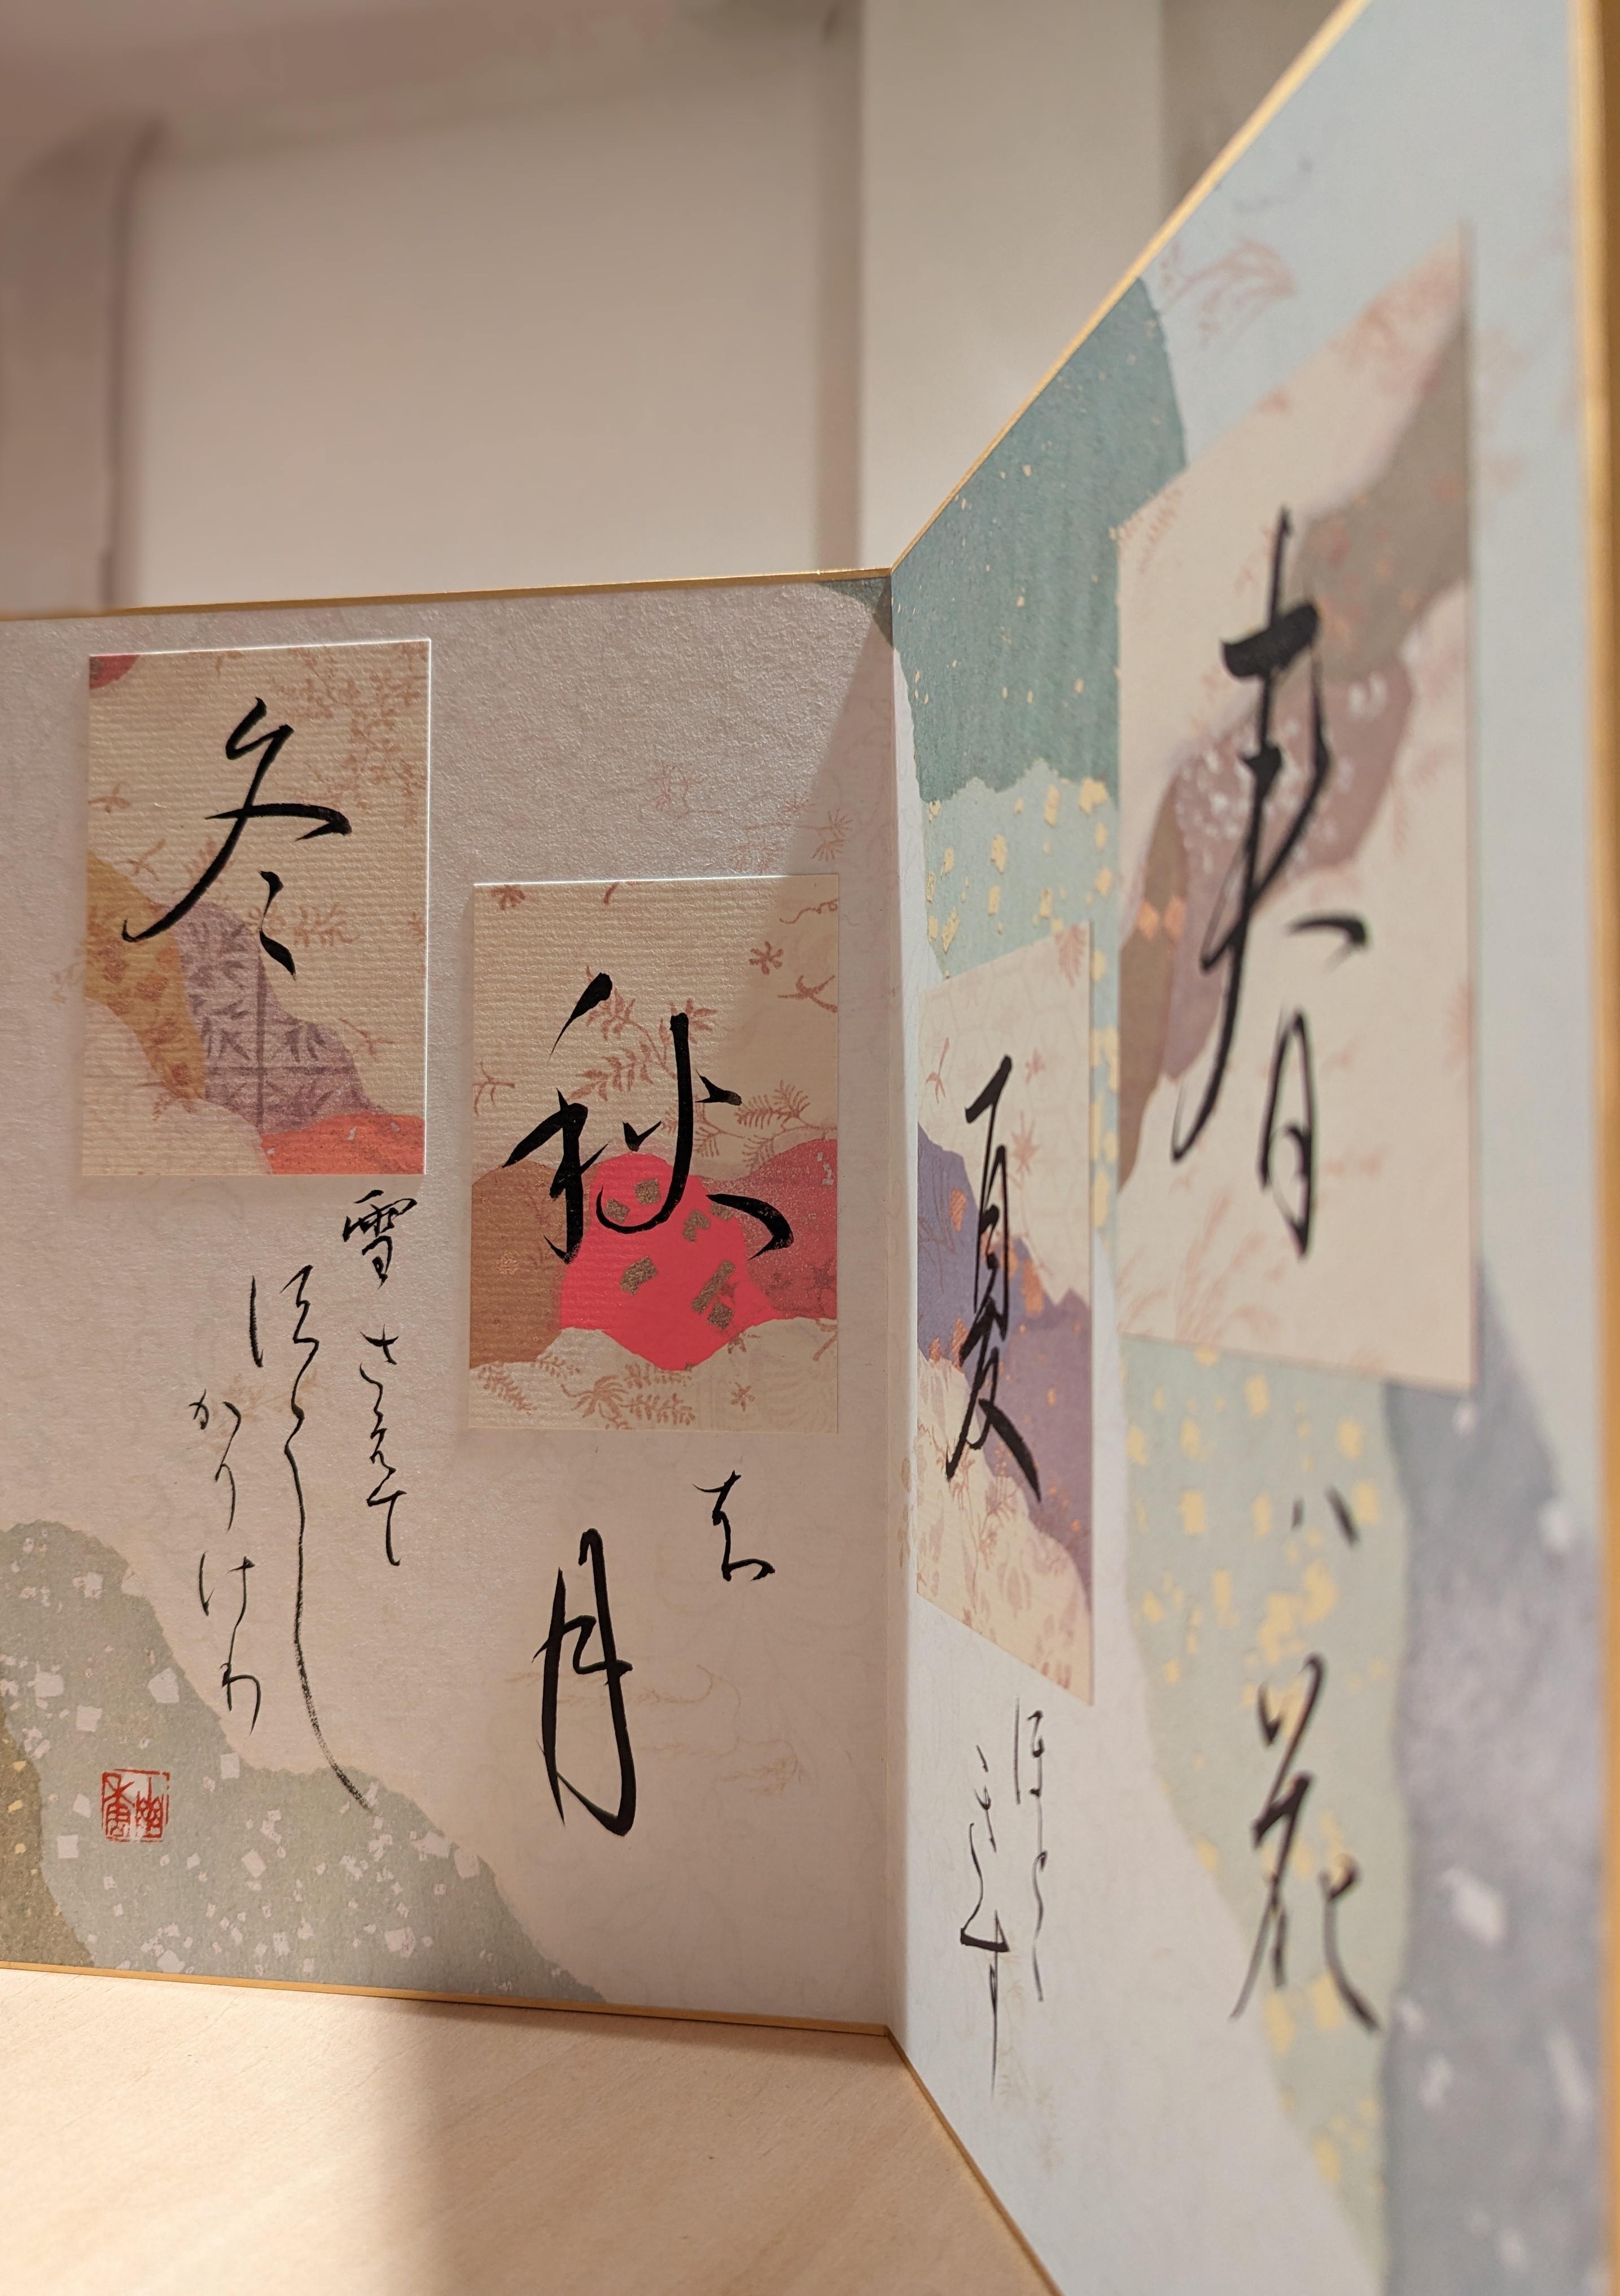 春
ハ花
夏
ほとゝ
きす
秋
は
月
冬
雪さえて
すゝし
かりけり